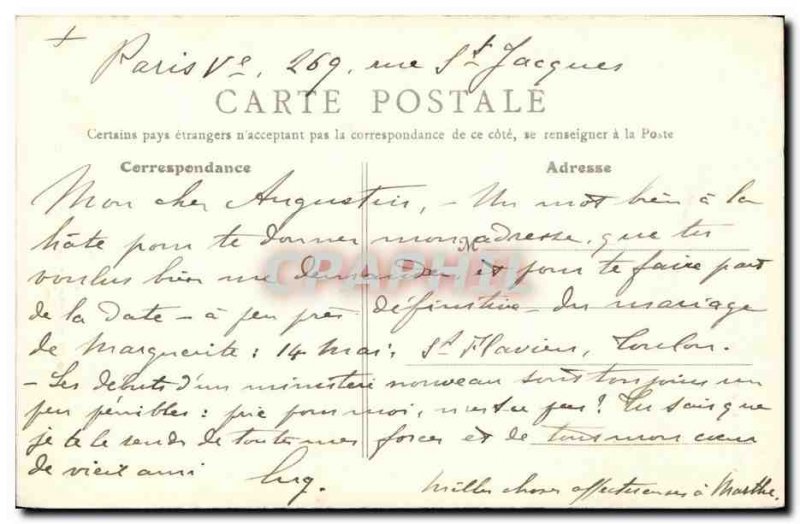 Paris Ve, 269, rue St Jacques
CARTE POSTALE
Certains pays étrangers n'acceptant pas la correspondance de ce côté, se renseigner à la Poste
Correspondance Adresse
Mon cher Augustin, - Un mot bien à la
hâte pour te donner mon adresse, que tu
voulus bien me demander et pour te faire part
de la date - à peu près définitive - du mariage
de Marguerite : 14 mai, St Flavien, Toulon.
- Les débuts d'un ministère nouveau sont toujours un
peu pénibles : prie pour moi, n'est-ce pas? Tu sais que
je te le rends de toutes mes forces et de tout mon cœur
de vieil ami
Mille choses affectueuses à Marthe.